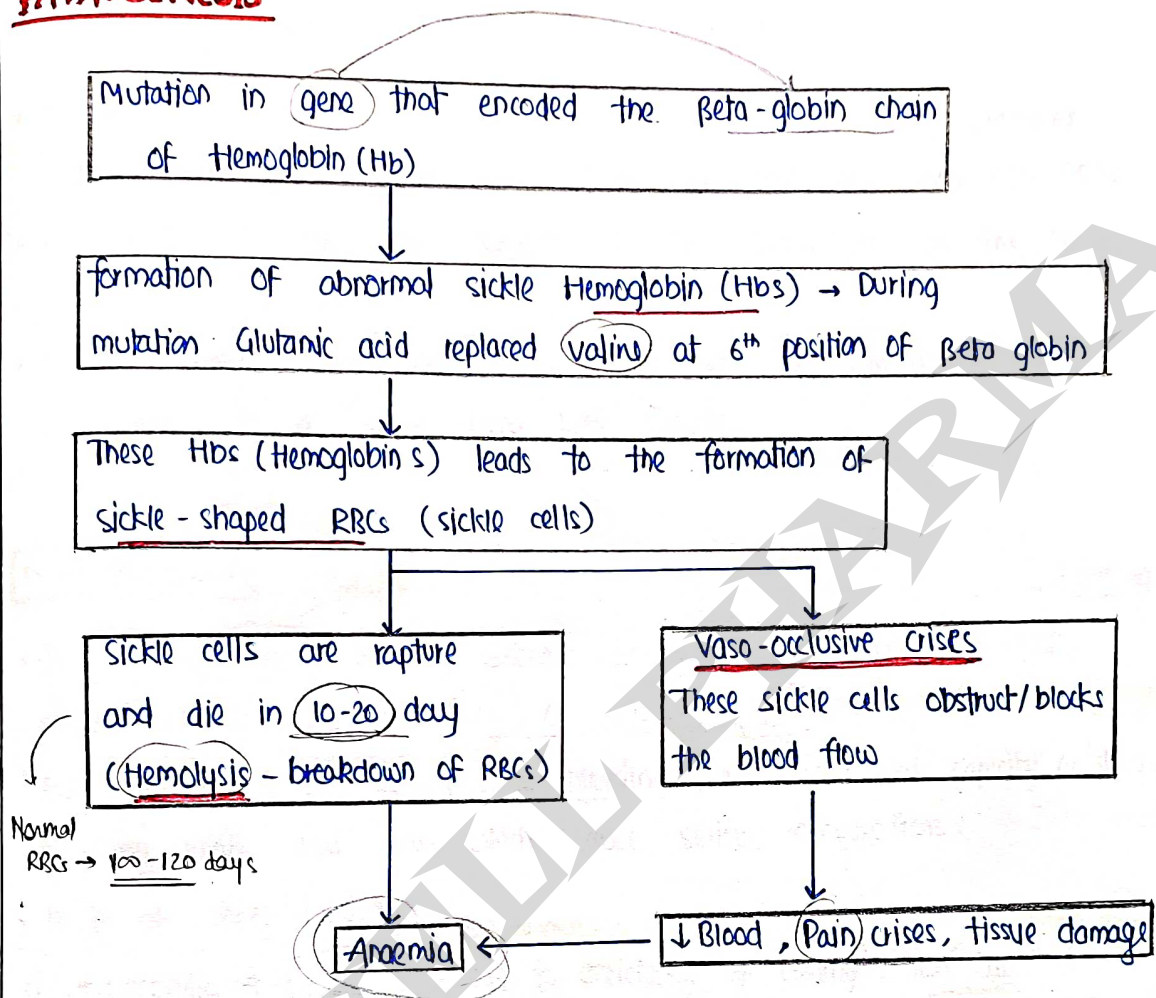 Mutation in gene that encoded the Beta-globin chain
of Hemoglobin (Hb)
formation of abnormal sickle Hemoglobin (Hbs) → During
mutation Glutamic acid replaced valine at 6th position of Beta globin
These Hbs (Hemoglobin s) leads to the formation of
sickle-shaped RBCs (sickle cells)
Sickle cells are rapture
and die in 10-20 day
(Hemolysis - breakdown of RBCs)
Vaso-occlusive crises
These sickle cells obstruct/blocks
the blood flow
Normal
RBCs → 100-120 days
Anaemia
↓ Blood, Pain crises, tissue damage